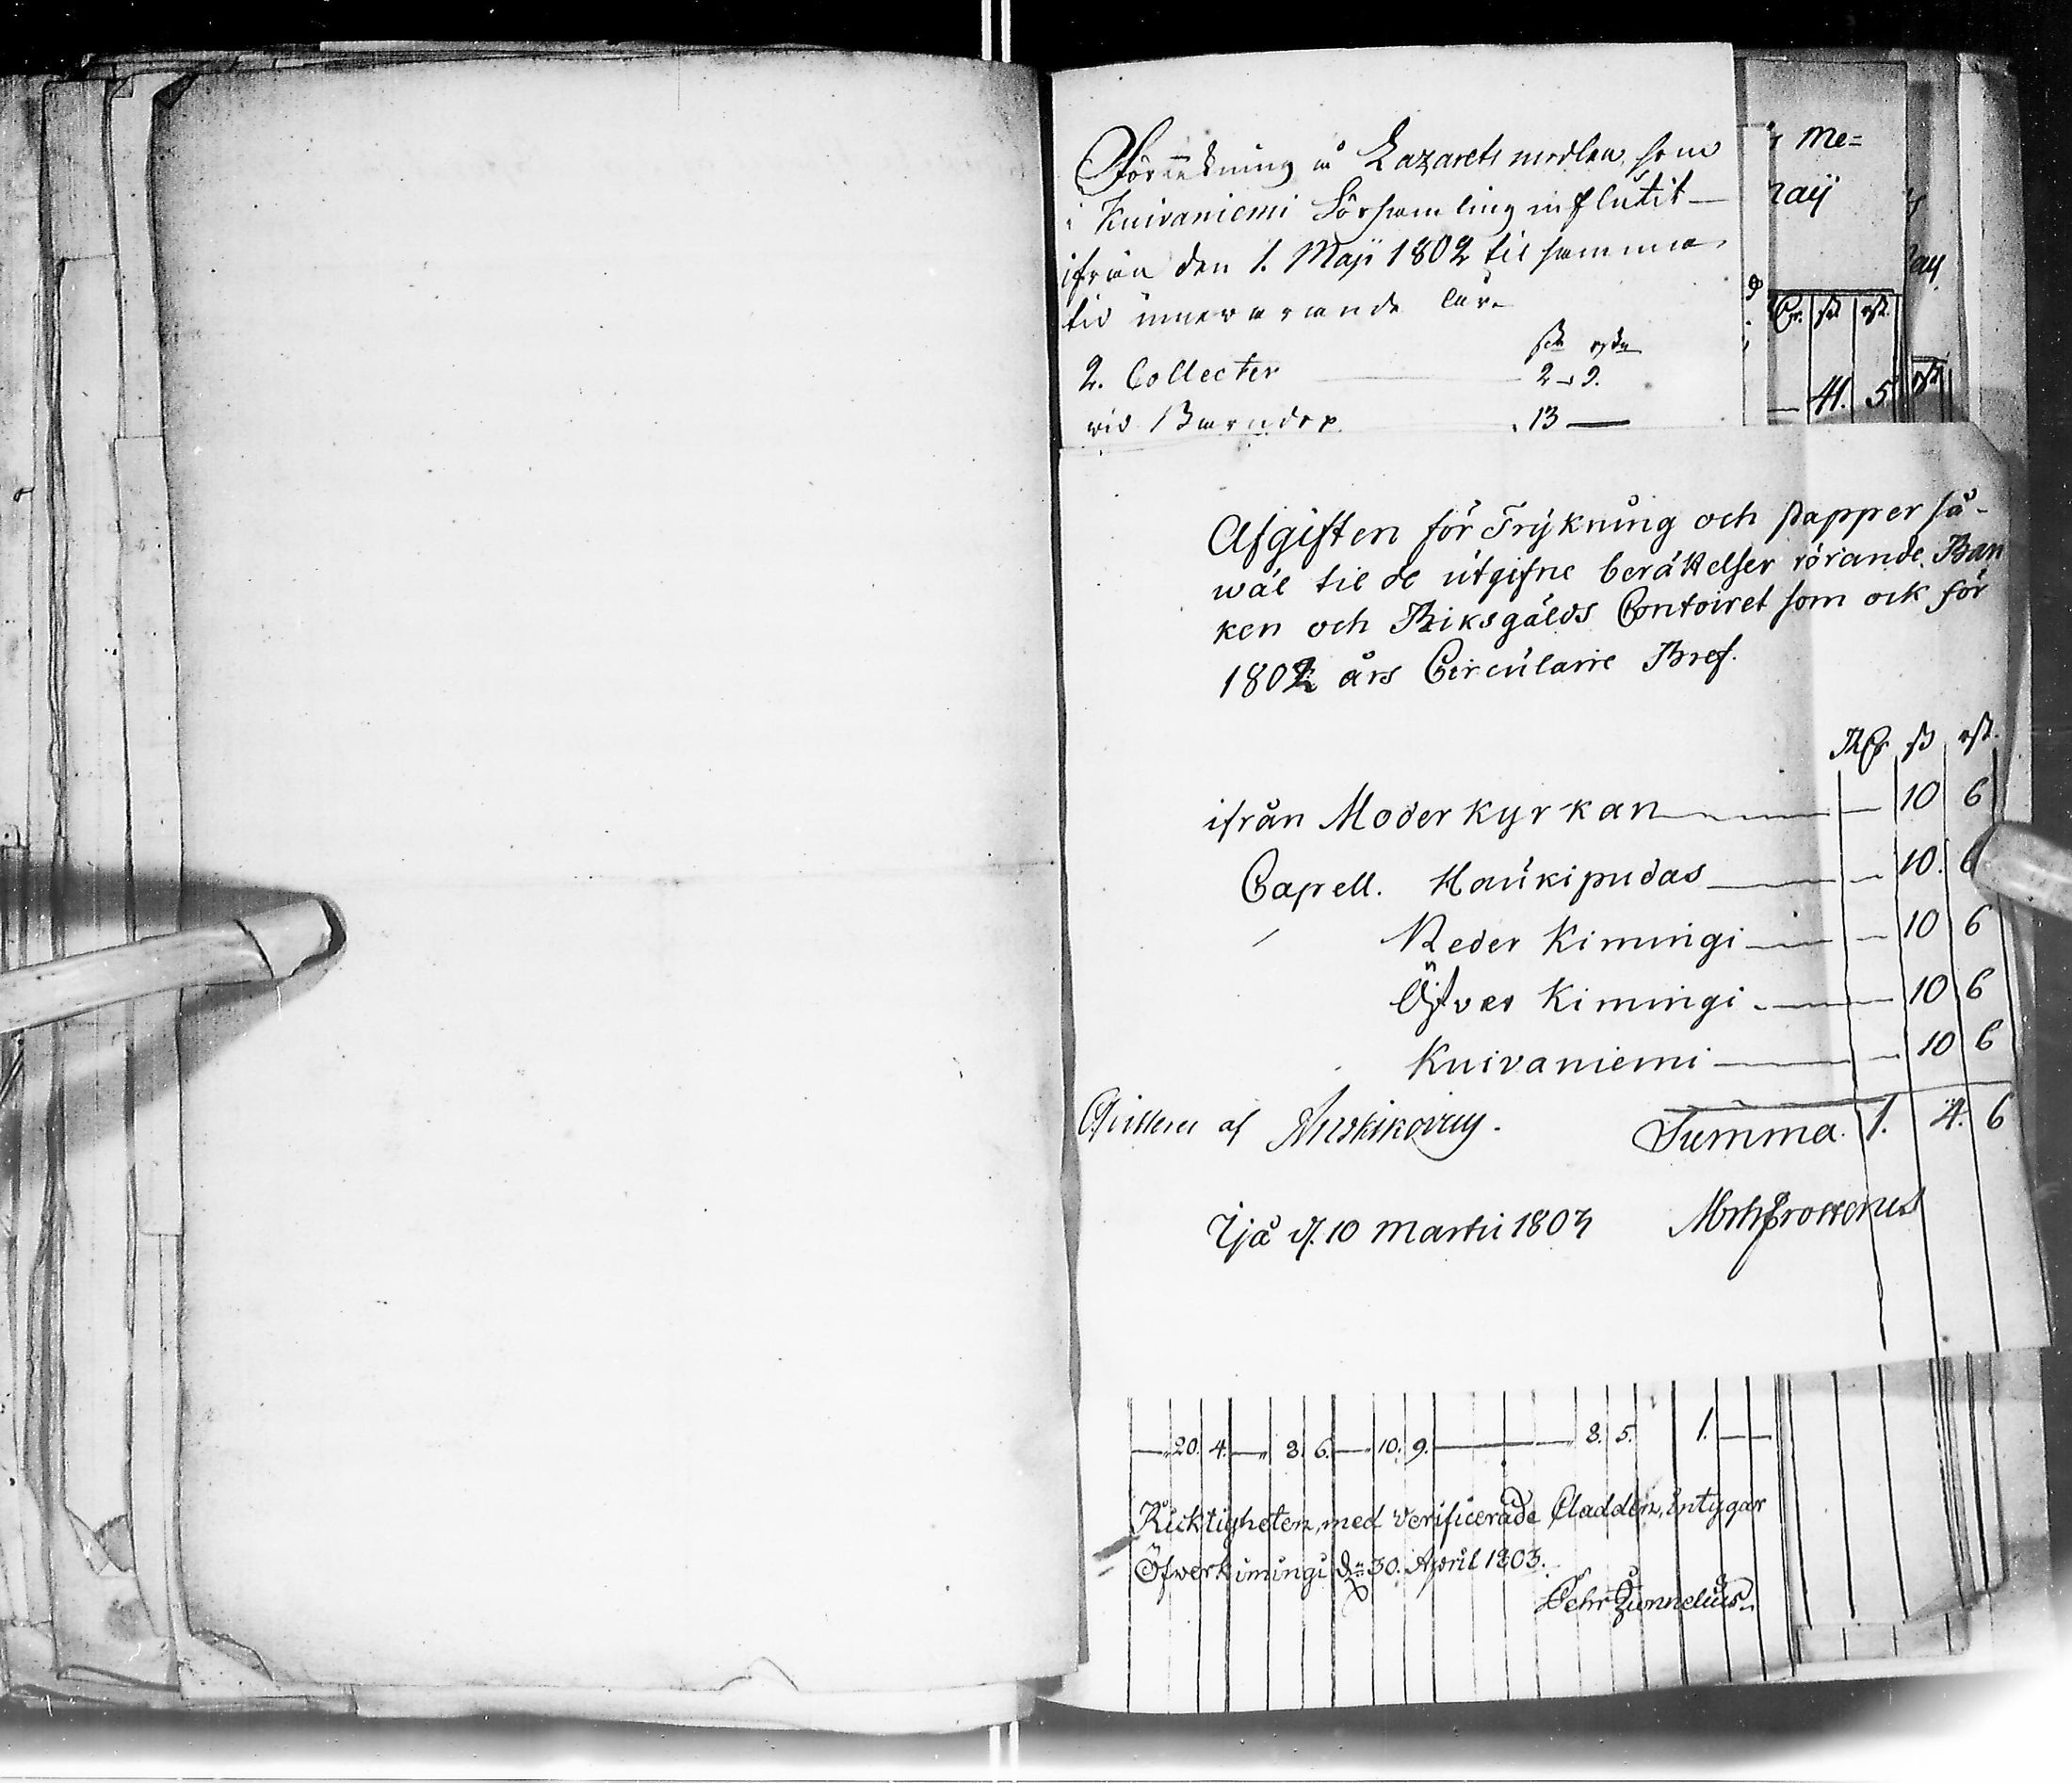 Förtekning å Lazaretsmedlen, som
i Kuivaniemi Församling influtit
ifrån den 1. Maji 1802 til samma
tid innevarande år.
2. Collecter 2 9.
vid Barndop 13
Me=
41. 5
Afgiften för Trykning och papper så-
wäl til de utgifne berättelser rörande Ban
ken och Riksgälds Contoiret som ock för
1802 års Circulaire Bref.
RG ß rst.
ifrån Moderkyrkan 10 6
Capell. Haukipudas 10. 6
Neder Kimingi 10 6
Öfver Kimingi 10 6
Kuivaniemi 10 6
af
Summa. 1. 4. 6
Ijå d. 10 Martii 1803
20. 4. 3. 6. 10. 9. 8. 5. 1.
Ricktigheten, med verificerade Cladden, intygar
Öfwerkimingi d. 30. April 1803.
Pehr